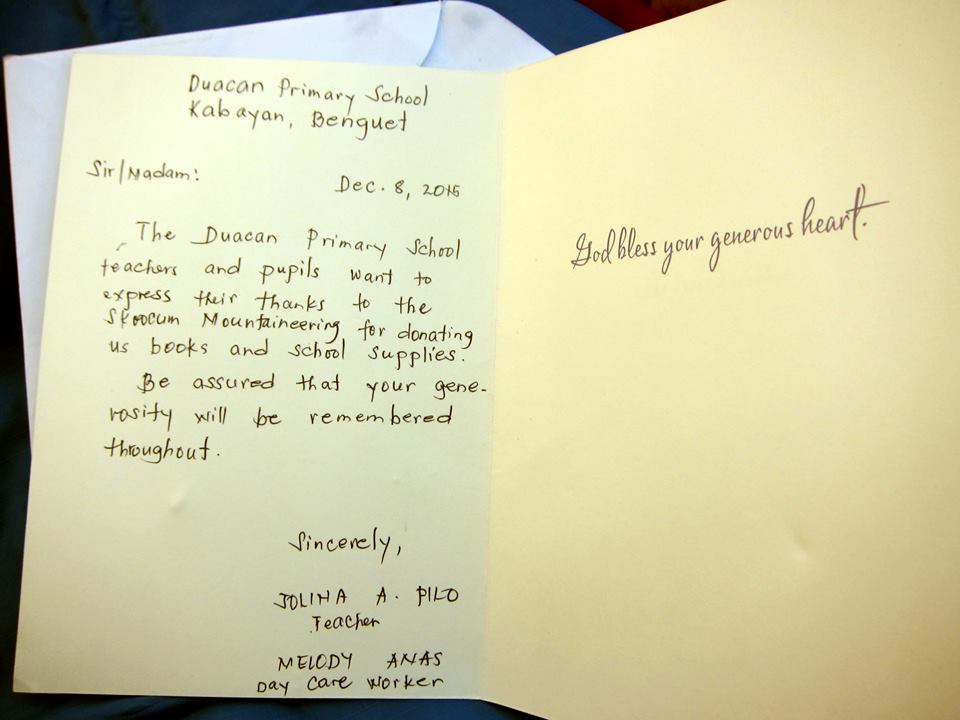 Duacan Primary School
Kabayan, Benguet
Sir/Madam:
Dec. 8, 2015
The Duacan Primary School
teachers and pupils want to
express their thanks to the
Skoocum Mountaineering for donating
us books and school supplies.
Be assured that your gene-
rosity will be remembered
throughout.
Sincerely,
JOLINA A. PILO
Teacher
MELODY ANAS
Day Care Worker
God bless your generous heart.